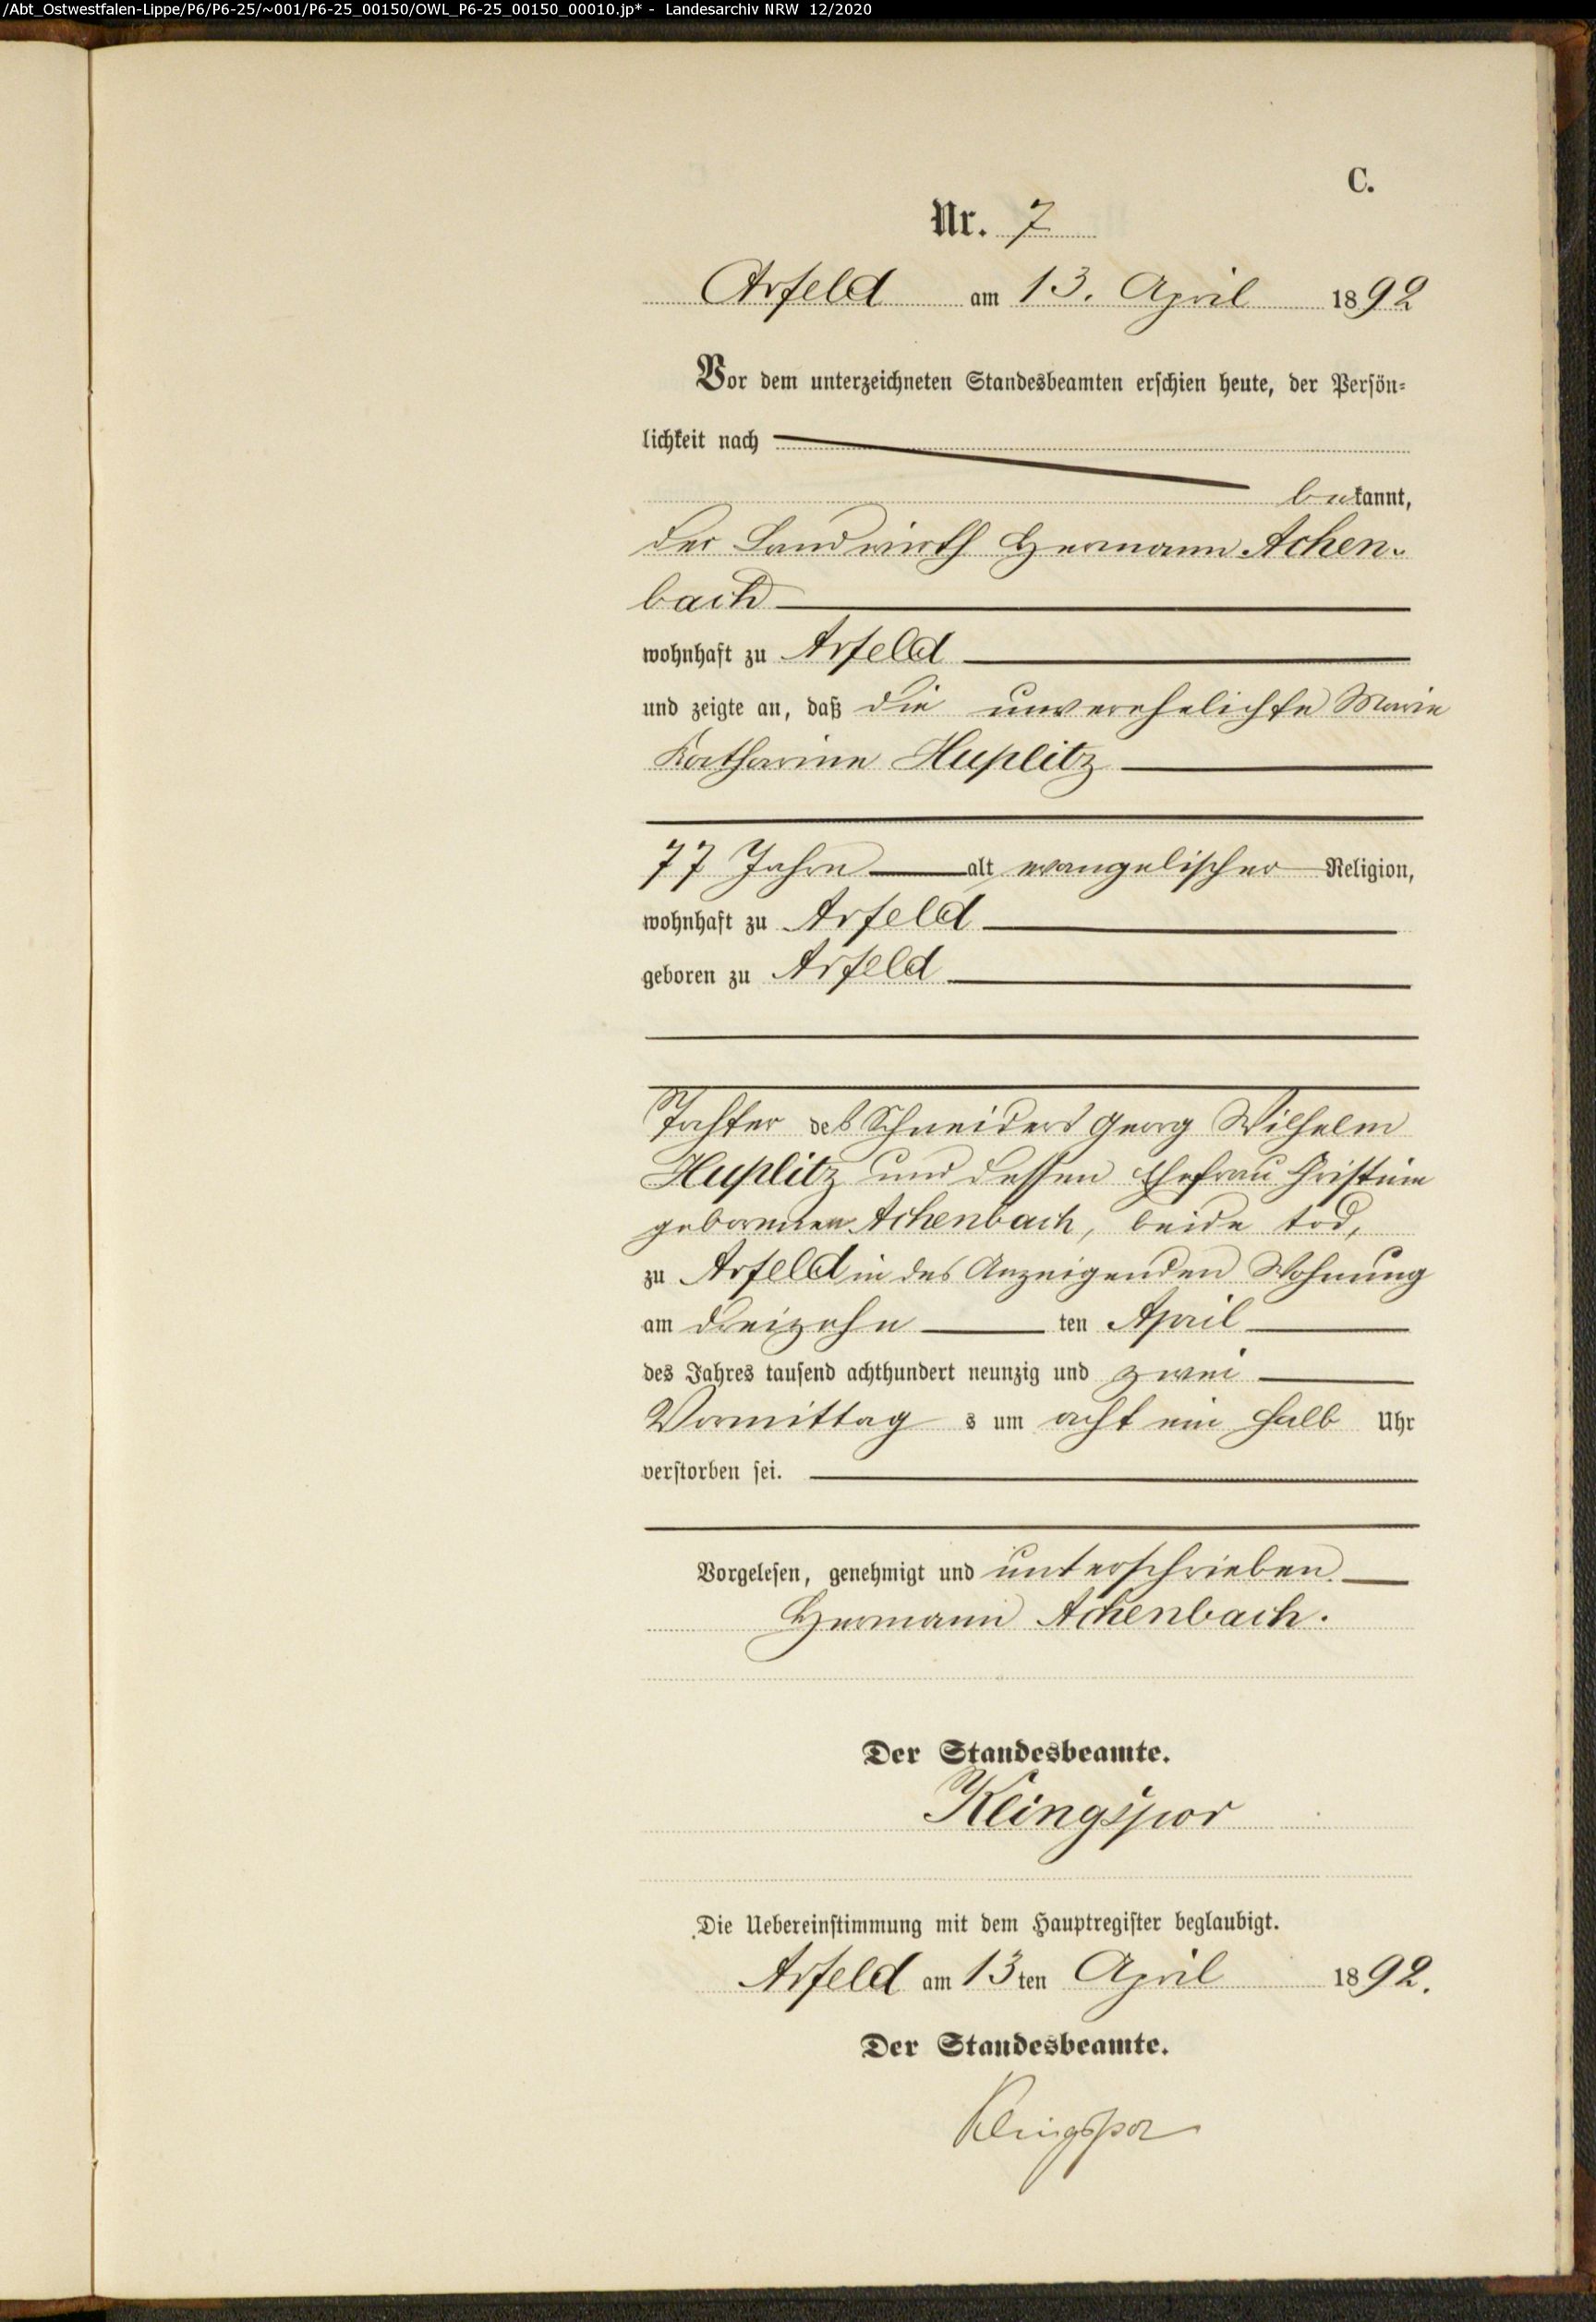 /Abt_Ostwestfalen-Lippe/P6/P6-25/~001/P6-25_00150/OWL_P6-25_00150_00010.jp* - Landesarchiv NRW 12/2020
C.
Nr. 7
Arfeld am 13. April 1892
Vor dem unterzeichneten Standesbeamten erschien heute, der Persön-
lichkeit nach
bekannt,
der Landwirth Hermann Achen-
bach
wohnhaft zu Arfeld
und zeigte an, daß die unverehelichte Marie
Katharine Huplitz
77 Jahre alt evangelischer Religion,
wohnhaft zu Arfeld
geboren zu Arfeld
Tochter des Schneiders Georg Wilhelm
Huplitz und dessen Ehefrau Christine
geborenen Achenbach, beide tod,
zu Arfeld in des Anzeigenden Wohnung
am dreizehn ten April
des Jahres tausend achthundert neunzig und zwei
Vormittag s um acht ein halb Uhr
verstorben sei.
Vorgelesen, genehmigt und unterschrieben.
Hermann Achenbach.
Der Standesbeamte.
Klingspor
Die Uebereinstimmung mit dem Hauptregister beglaubigt.
Arfeld am 13ten April 1892.
Der Standesbeamte.
Klingspor